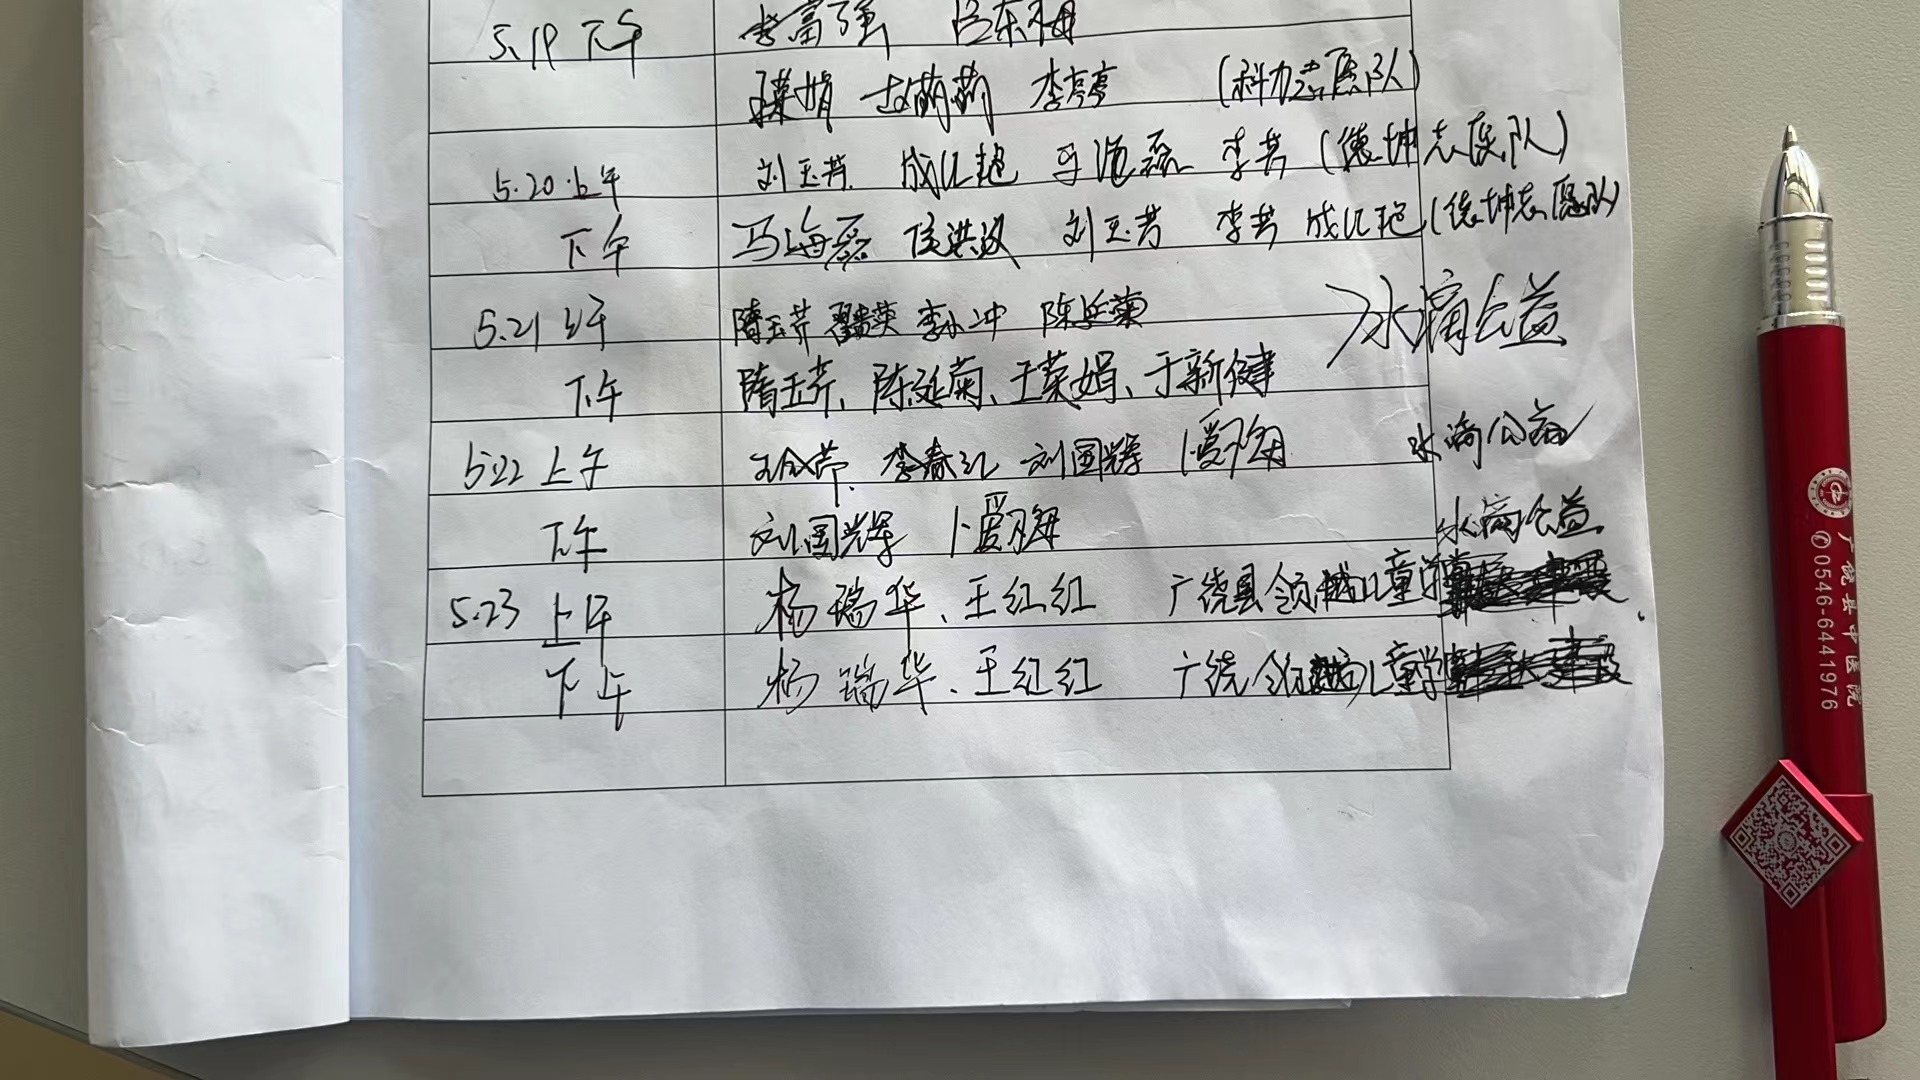 5.19 下午 李富强 吕东梅
李亭亭 (科力志愿队)
5.20 上午 刘玉芳 成红艳 马海磊 李芳 (德坤志愿队)
下午 马海磊 侯洪汉 刘玉芳 李芳 成红艳 (德坤志愿队)
5.21 上午 隋玉芹 李小冲 陈延菊 水滴公益
下午 隋玉芹、陈延菊、王荣娟、于新健
5.22 上午 李春红 刘国辉 卜爱翔 水滴公益
下午 刘国辉 卜爱翔 水滴公益
5.23 上午 杨瑞华、王红红 广饶县领越儿童学
下午 杨瑞华、王红红 广饶领越儿童学
广饶县中医院
✆0546-6441976